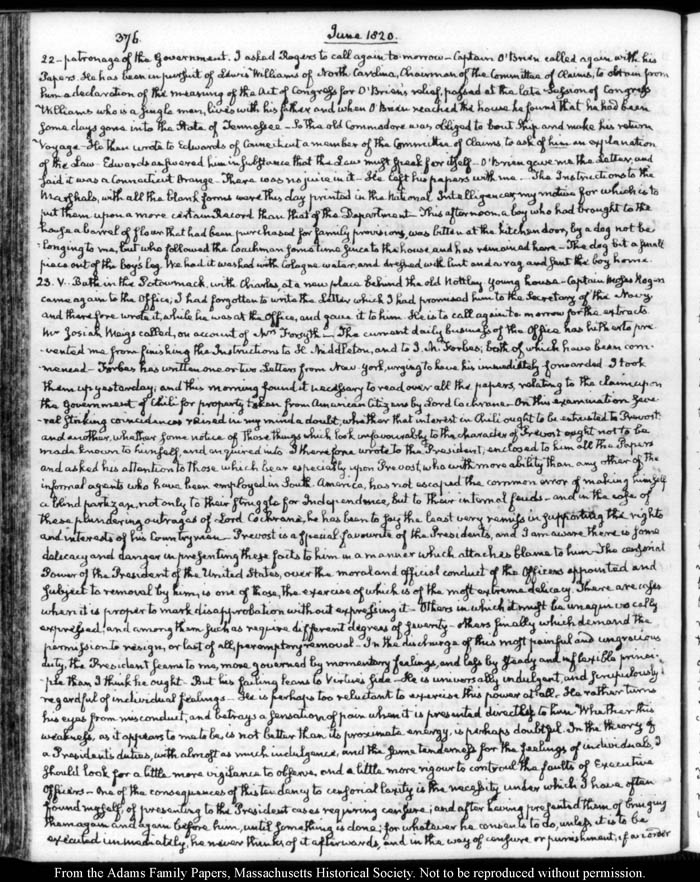 376.
June 1820.
22 – patronage of the Government. I asked Rogers to call again to-morrow – Captain O'Brien called again with his
Papers. He has been in pursuit of Lewis Williams of North Carolina, Chairman of the Committee of Claims, to obtain from
him a declaration of the meaning of the Act of Congress for O'Brien's relief, passed at the late Session of Congress
Williams who is a single man, lives with his father and when O'Brien reached the house he found that he had been
some days gone into the State of Tennessee – So the old Commodore was obliged to bout Ship and make his return
Voyage – He then wrote to Edwards of Connecticut a member of the Committee of Claims to ask of him an explanation
of the Law – Edwards answered him in substance that the Law must speak for itself – O'Brien gave me the Letter, and
said it was a Connecticut Orange – There was no juice in it – He left his papers with me. – The Instructions to the
Marshals, with all the blank forms were this day printed in the National Intelligencer, my motive for which is to
put them upon a more certain Record than that of the Department – This afternoon, a boy who had brought to the
house a barrel of flour that had been purchased for family provisions, was bitten at the kitchen door, by a dog not be
-longing to me, but who followed the Coachman some time since to the house, and has remained here – The dog bit a small
piece out of the boy's leg. We had it washed with Cologne water, and dressed with lint and a rag and sent the boy home.
23. V. Bathe in the Potowmack, with Charles, at a new place behind the old Nottley Young house – Captain Rogers
came again to the Office; I had forgotten to write the Letter which I had promised him to the Secretary of the Navy,
and therefore wrote it, while he was at the Office, and gave it to him. He is to call again to-morrow for the extracts
Mr Josiah Meigs called, on account of Mrs Forsyth – The current daily business of the Office has hitherto pre
-vented me from finishing the Instructions to H. Middleton, and to J. M. Forbes; both of which have been com-
-menced – Forbes has written one or two Letters from New-York, urging to have his immediately forwarded I took
them up yesterday; and this morning found it necessary to read over all the papers, relating to the claims upon
the Government of Chili for property taken from American Citizens by Lord Cochrane. On this examination seve
-ral striking coincidences raised in my mind a doubt, whether that interest in Chili ought to be entrusted to Prevost:
and another, whether some notice of those things which look unfavourably to the character of Prevost ought not to be
made known to himself, and enquired into I therefore wrote to the President; enclosed to him all the Papers
and asked his attention to those which bear especially upon Prevost, who with more ability than any other of the
informal agents who have been employed in South America, has not escaped the common error of making himself
a blind partizan, not only to their struggle for Independence, but to their internal feuds – and in the case of
these plundering outrages of Lord Cochrane, he has been to say the least very remiss in supporting the rights
and interests of his Countrymen – Prevost is a special favourite of the President's, and I am aware there is some
delicacy and danger in presenting these facts to him in a manner which attaches blame to him – The censorial
Power of the President of the United States, over the moral and official conduct of the Officers appointed and
subject to removal by him, is one of those, the exercise of which is of the most extreme delicacy. There are cases
when it is proper to mark disapprobation without expressing it – Others in which it must be unequivocally
expressed, and among them such as require different degrees of severity – others finally which demand the
permission to resign, or last of all, peremptory removal – In the discharge of this most painful and ungracious
duty, the President seems to me, more governed by momentary feelings, and less by steady and inflexible princi-
-ple than I think he ought – But his failing leans to Virtue's side – He is universally indulgent, and scrupulously
regardful of individual feelings – He is perhaps too reluctant to exercise this power at all. He rather turns
his eyes from misconduct, and betrays a sensation of pain when it is presented directly to him Whether this
weakness, as it appears to me to be, is not better than its proximate energy, is perhaps doubtful. In the theory of
a President's duties, with almost as much indulgence, and the same tenderness for the feelings of individuals, I
should look for a little more vigilance to observe, and a little more rigour to controul the faults of Executive
Officers – One of the consequences of this tendency to censorial laxity is the necessity under which I have often
found myself of presenting to the President cases requiring censure; and after having presented them of bringing
them again and again before him, until something is done; for whatever he consents to do, unless it is to be
executed immediately, he never thinks of it afterwards, and in the way of censure or punishment, if an order
From the Adams Family Papers, Massachusetts Historical Society. Not to be reproduced without permission.